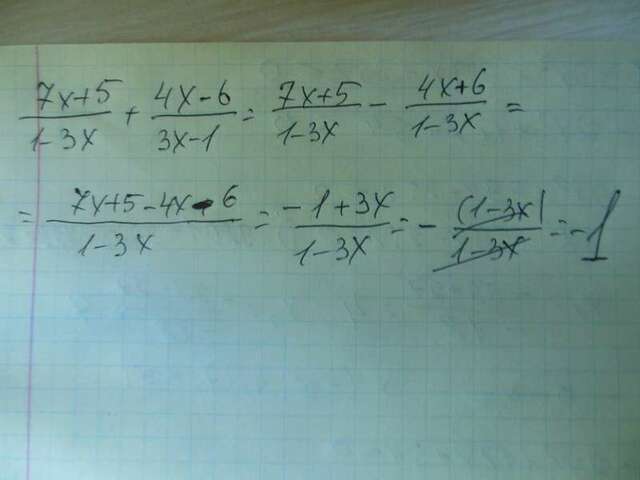 (7x+5)/(1-3x) + (4x-6)/(3x-1) = (7x+5)/(1-3x) - (4x+6)/(1-3x) =
= (7x+5-4x-6)/(1-3x) = (-1+3x)/(1-3x) = - (1-3x)/(1-3x) = -1